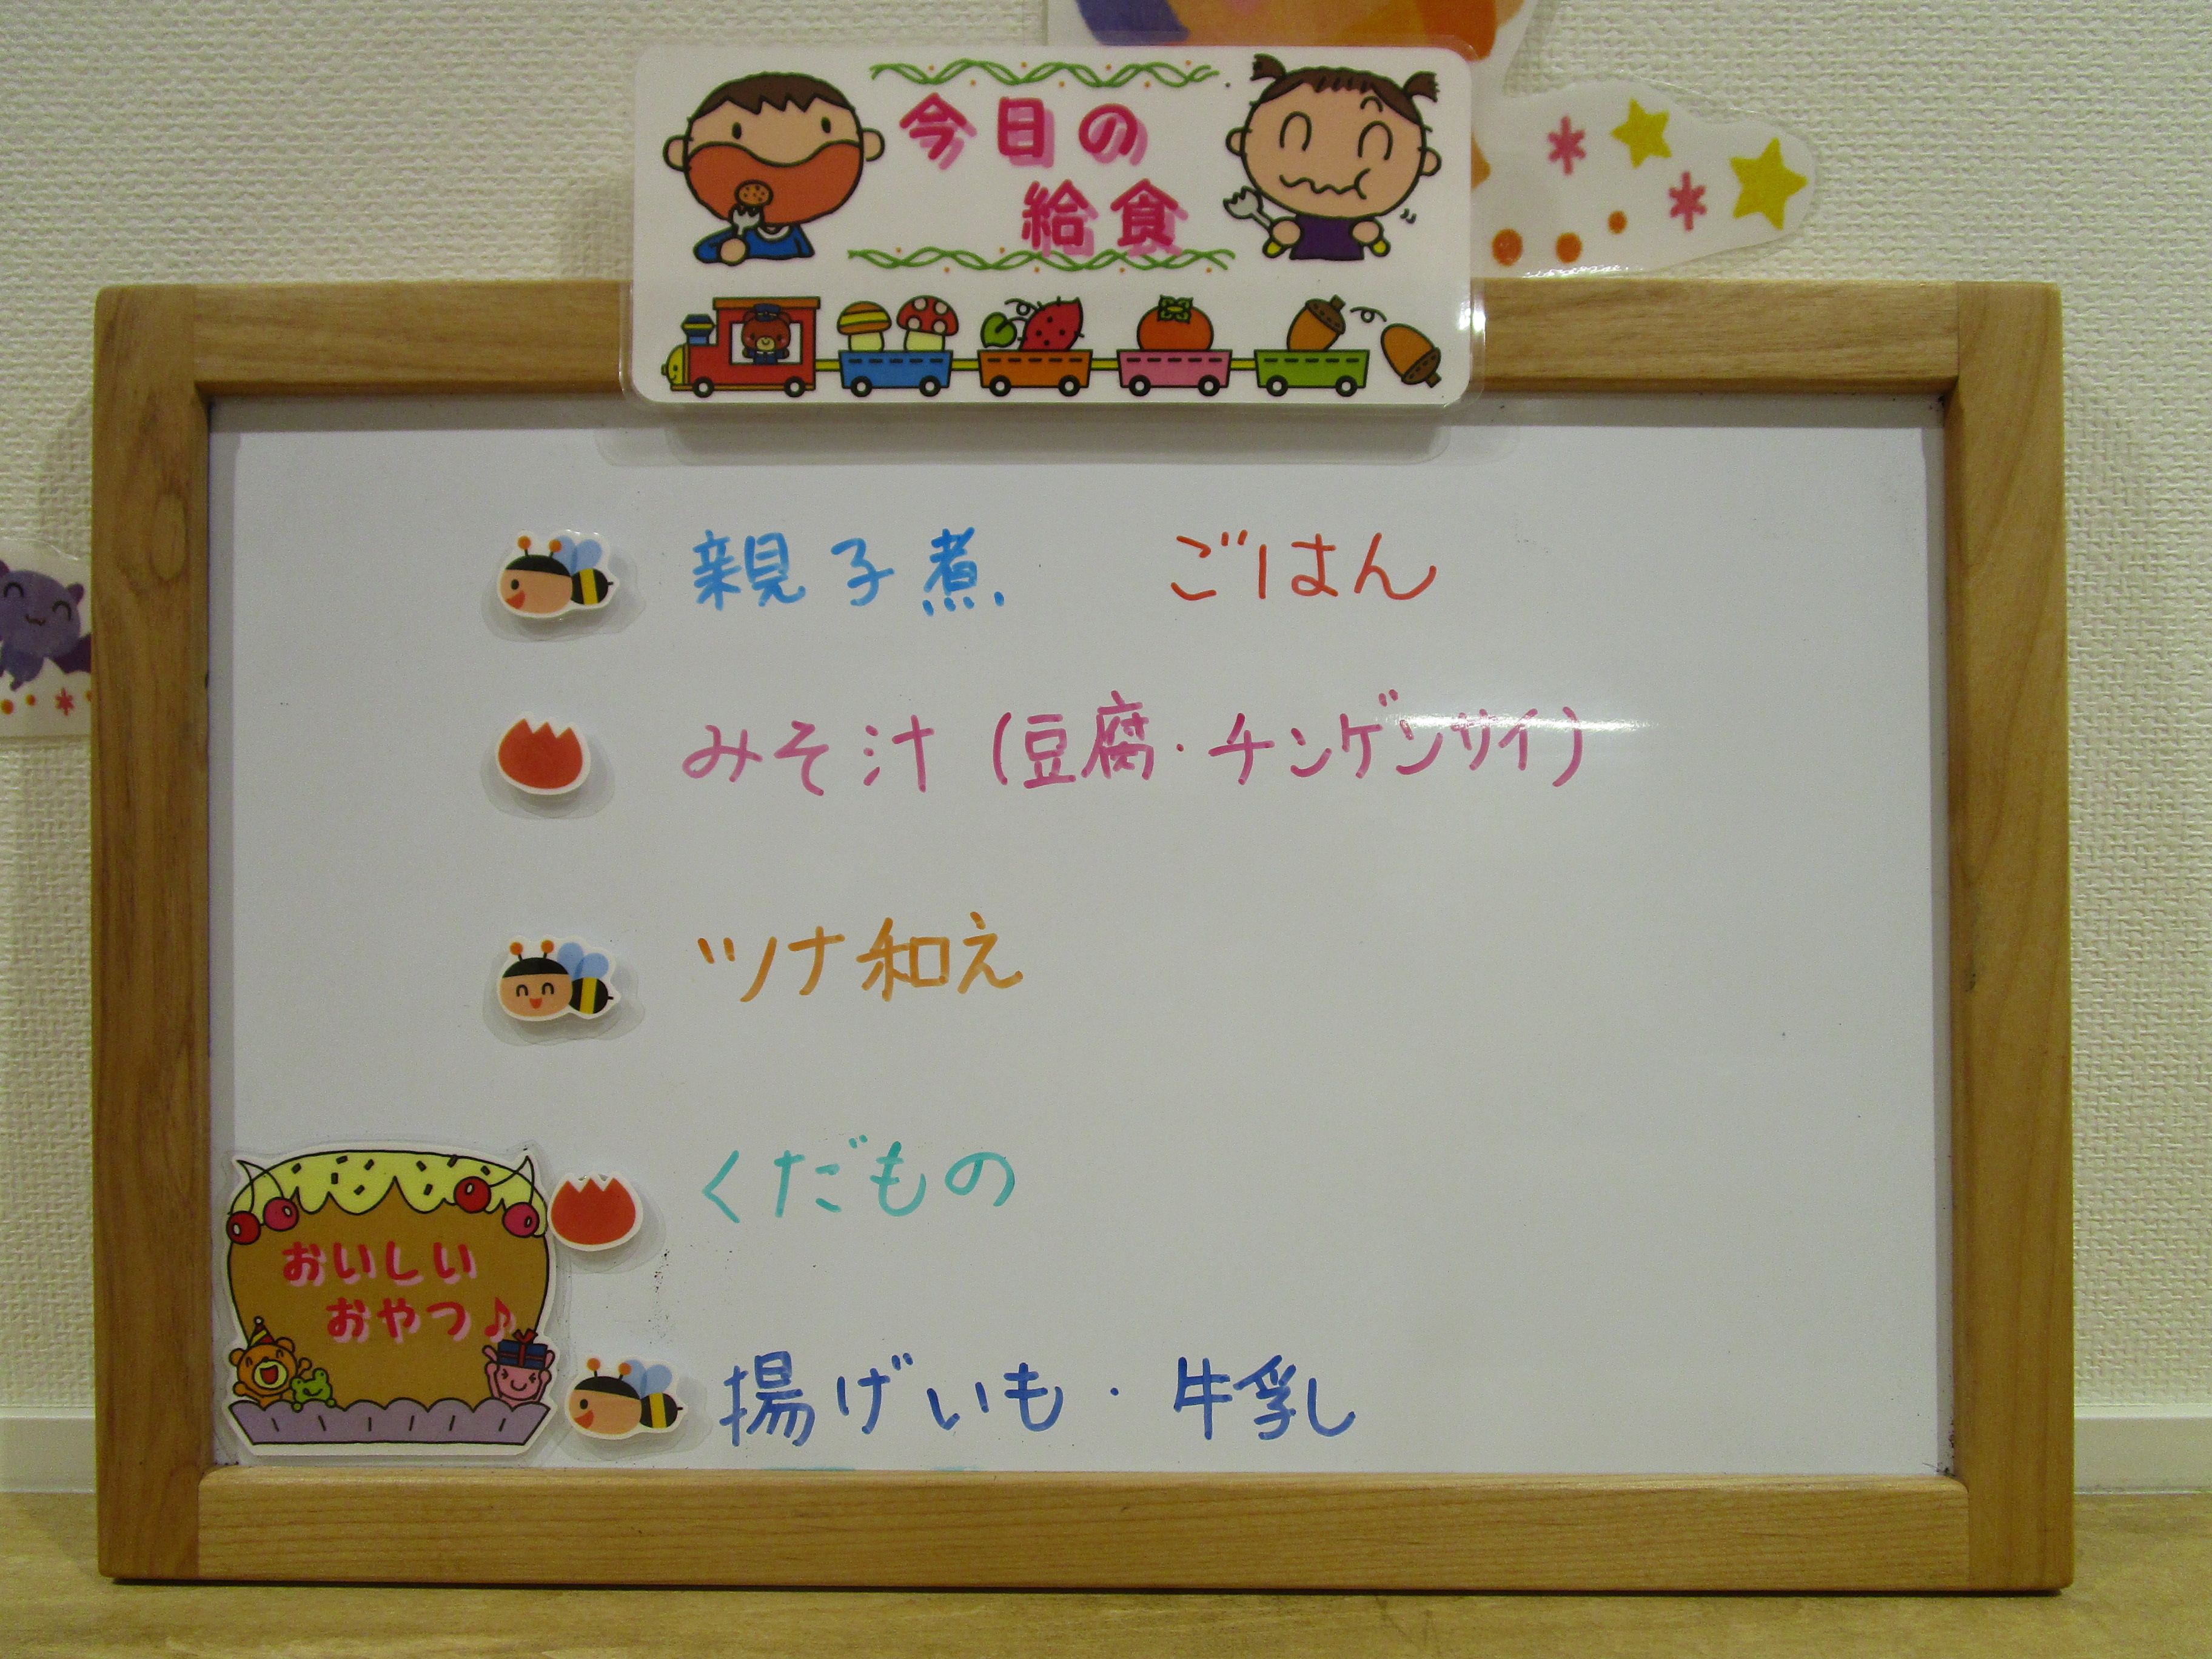 今日の
給食
親子煮 ごはん
みそ汁(豆腐・チンゲンサイ)
ツナ和え
くだもの
おいしい
おやつ♪
揚げいも・牛乳